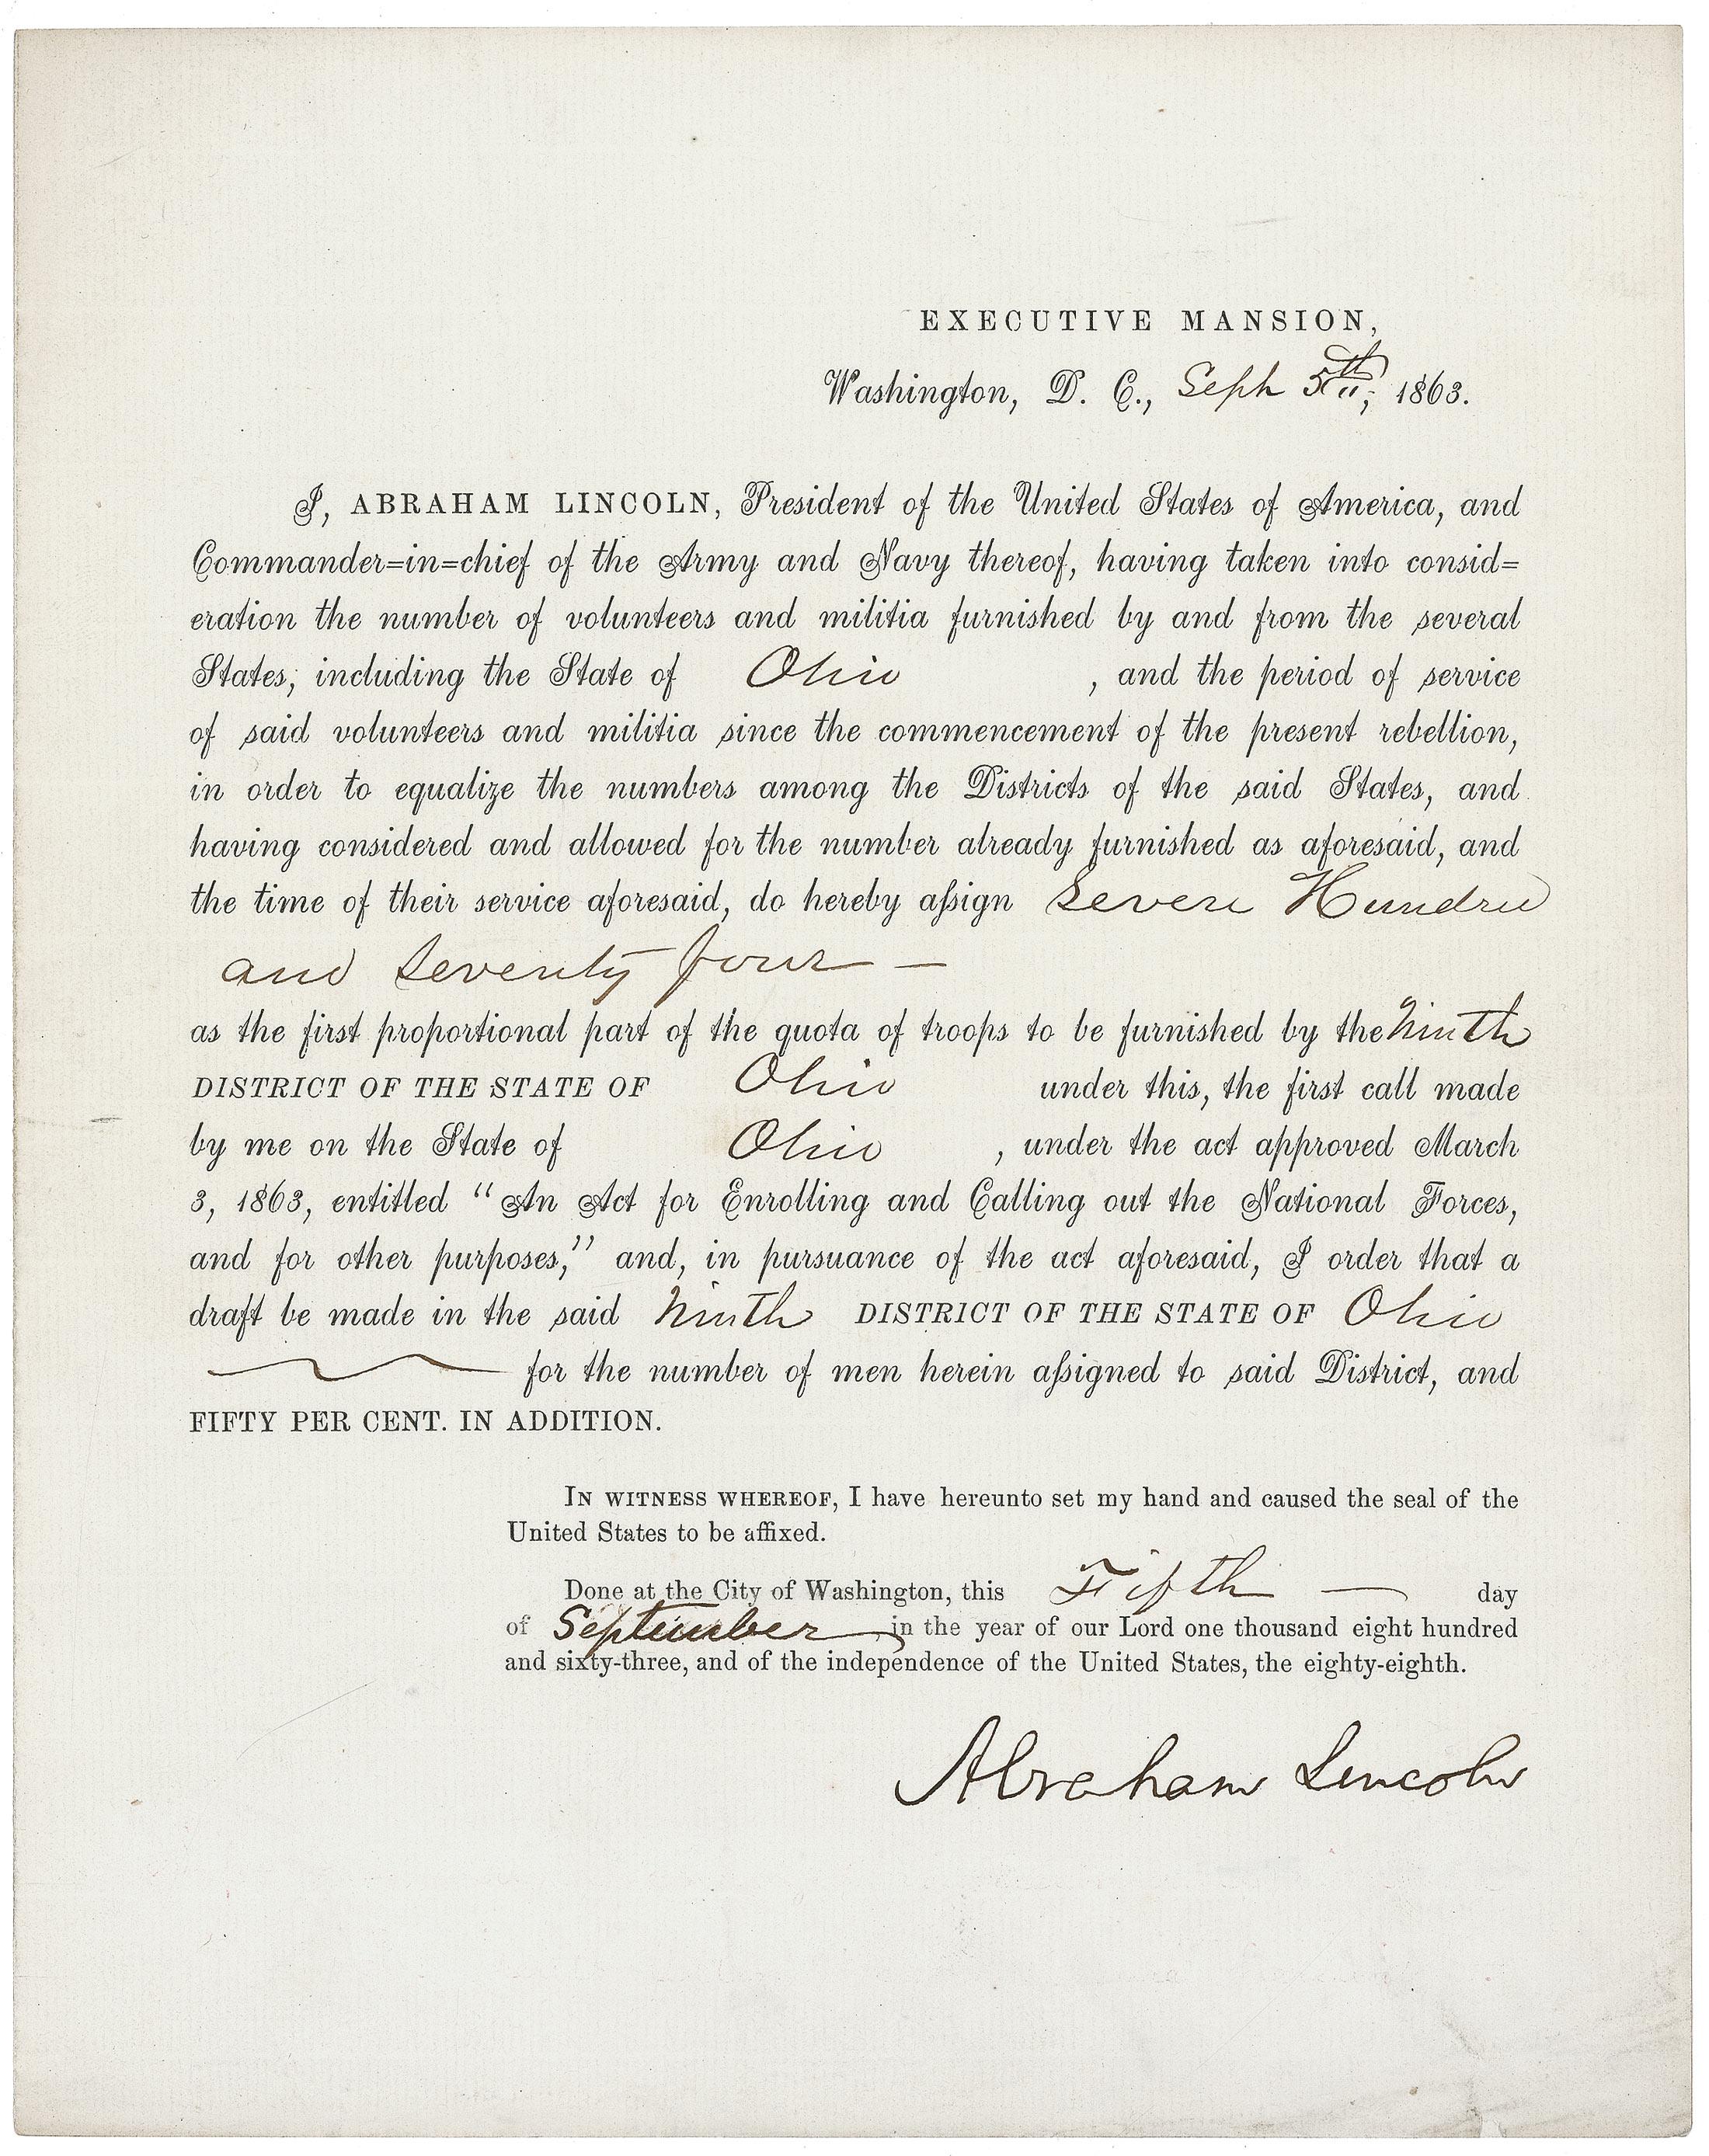 EXECUTIVE MANSION,
Washington, D. C., Sept 5th, 1863.
I, ABRAHAM LINCOLN, President of the United States of America, and
Commander=in=chief of the Army and Navy thereof, having taken into consid=
eration the number of volunteers and militia furnished by and from the several
States, including the State of Ohio , and the period of service
of said volunteers and militia since the commencement of the present rebellion,
in order to equalize the numbers among the Districts of the said States, and
having considered and allowed for the number already furnished as aforesaid, and
the time of their service aforesaid, do hereby assign Seven Hundred
and seventy four —
as the first proportional part of the quota of troops to be furnished by the Ninth
DISTRICT OF THE STATE OF Ohio under this, the first call made
by me on the State of Ohio , under the act approved March
3, 1863, entitled "An Act for Enrolling and Calling out the National Forces,
and for other purposes," and, in pursuance of the act aforesaid, I order that a
draft be made in the said Ninth DISTRICT OF THE STATE OF Ohio
for the number of men herein assigned to said District, and
FIFTY PER CENT. IN ADDITION.
IN WITNESS WHEREOF, I have hereunto set my hand and caused the seal of the
United States to be affixed.
Done at the City of Washington, this Fifth — day
of September , in the year of our Lord one thousand eight hundred
and sixty-three, and of the independence of the United States, the eighty-eighth.
Abraham Lincoln